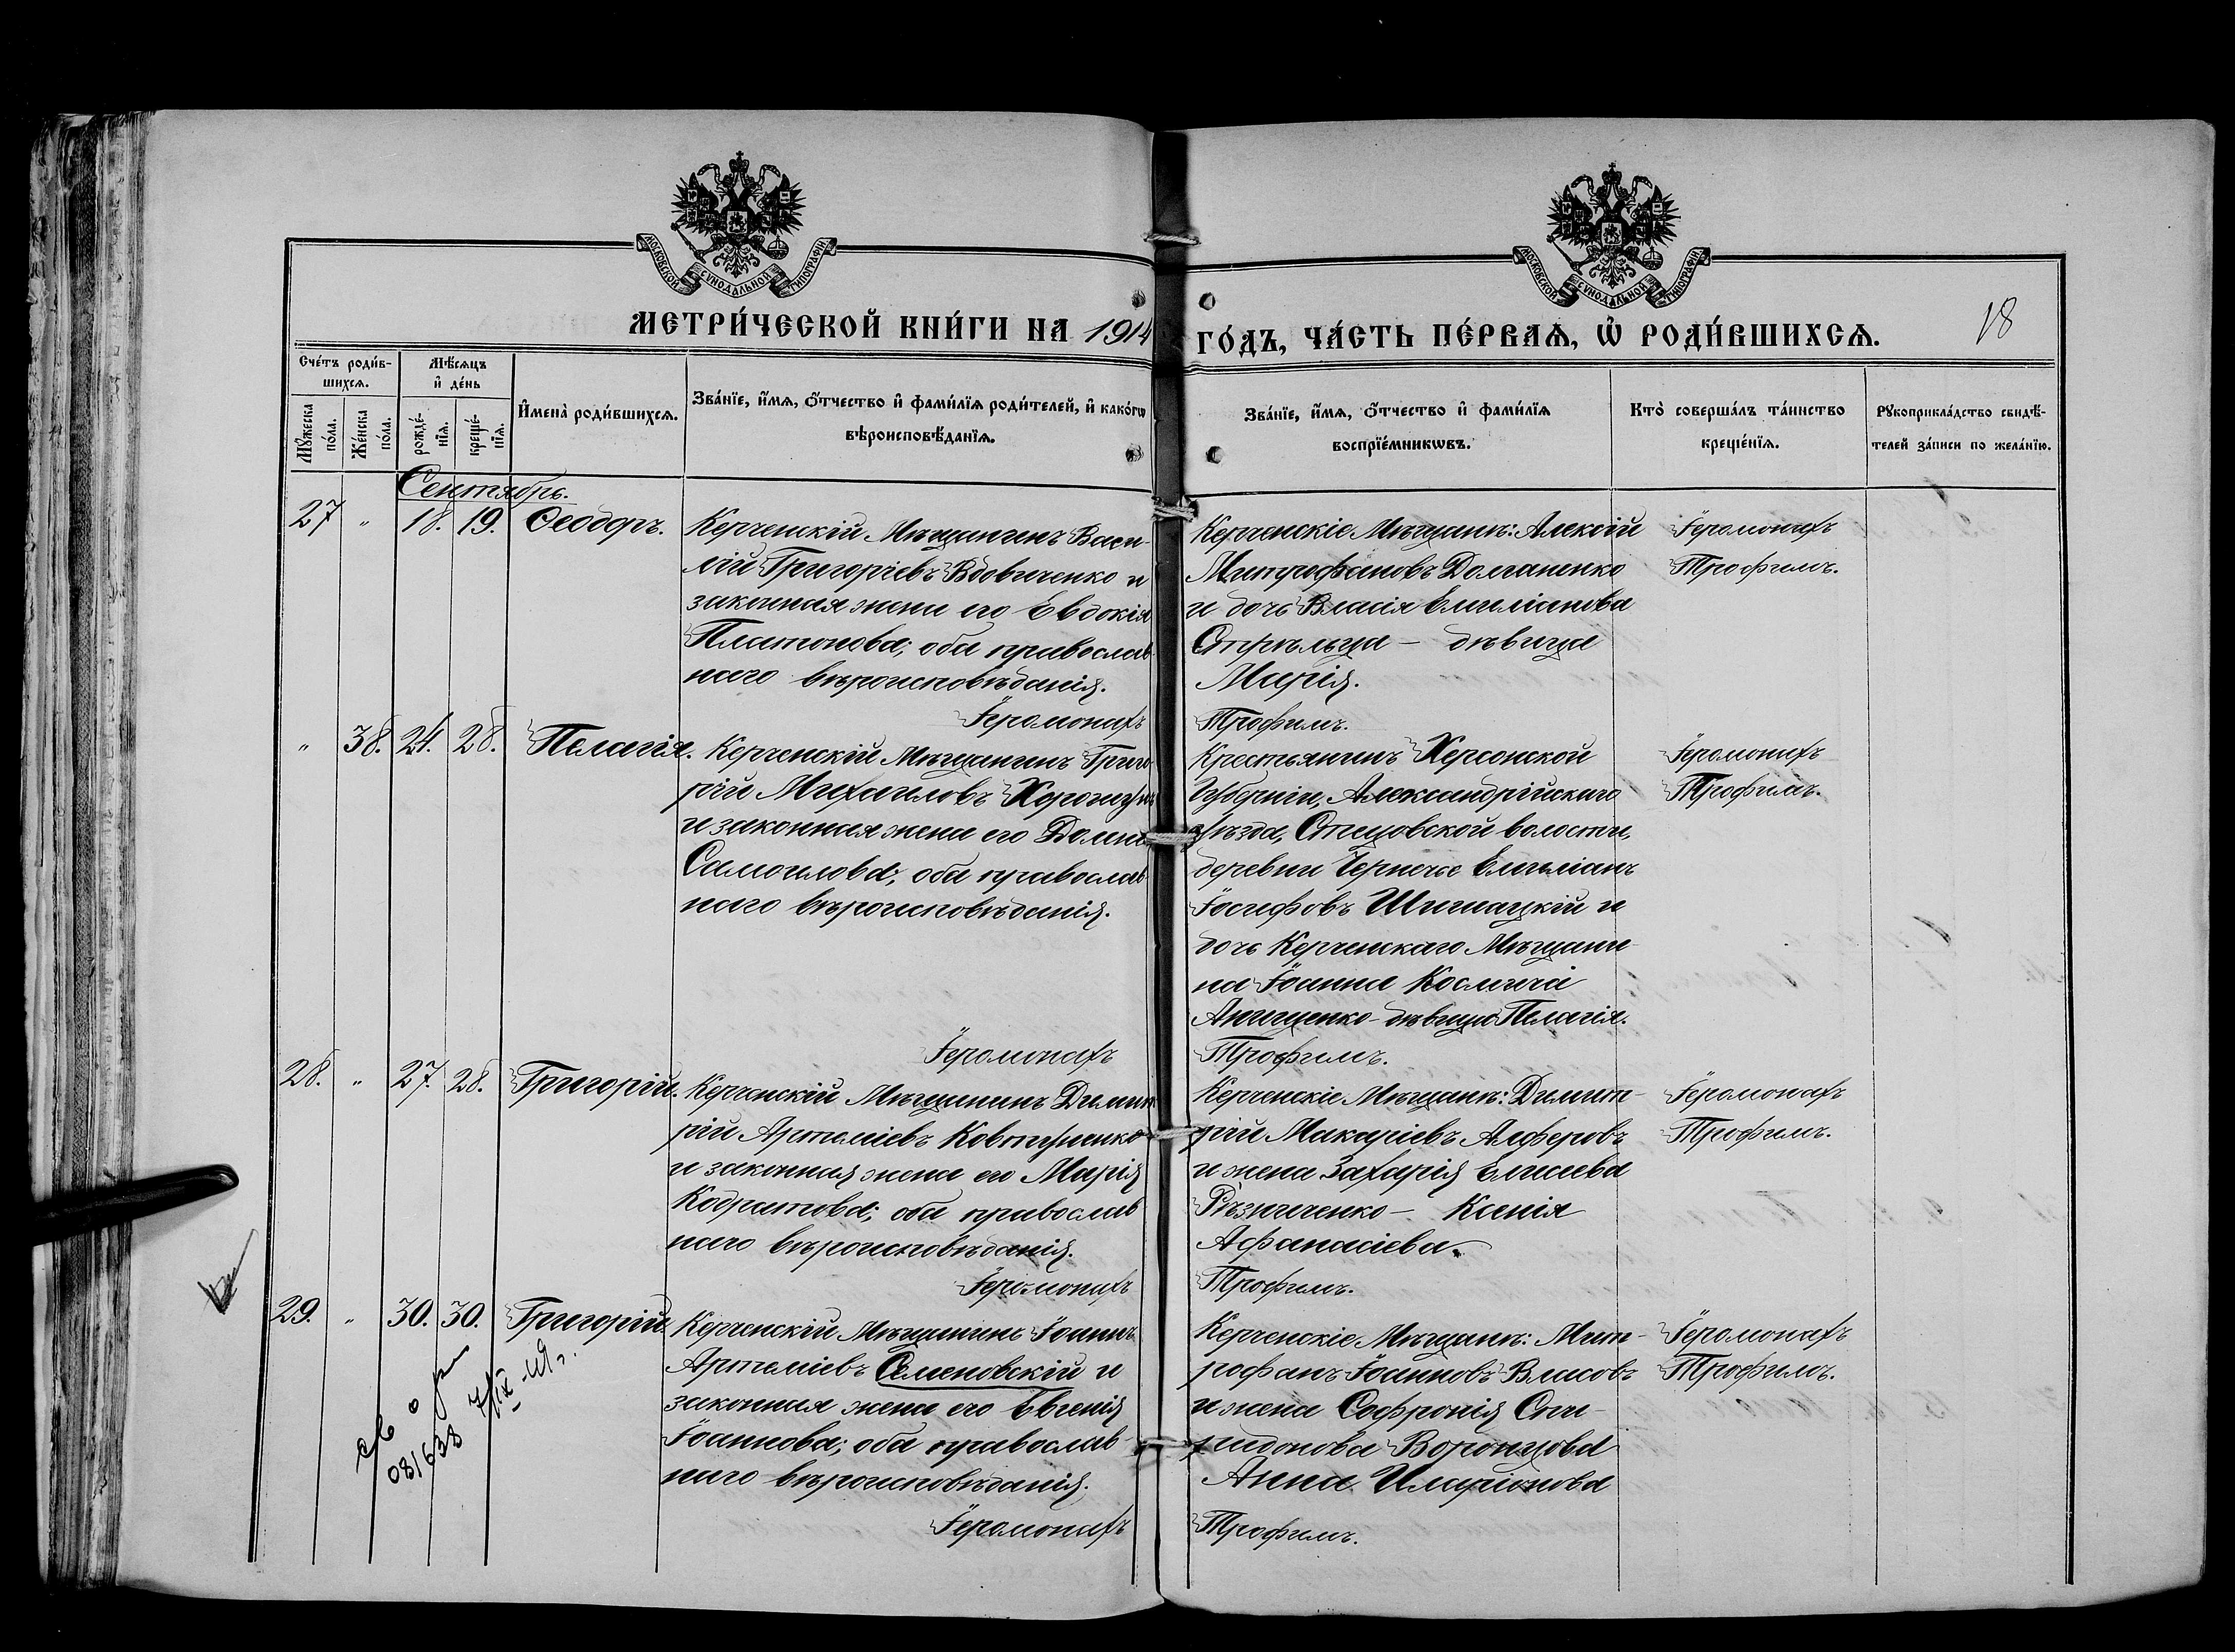 МОСКОВСКОЙ СУНОДАЛЬНОЙ ТИПОГРАФІИ
МОСКОВСКОЙ СУНОДАЛЬНОЙ ТИПОГРАФІИ
МЕТРИ́ЧЕСКОЙ КНИ́ГИ НА 1914
ГО́ДЪ, ЧА́СТЬ ПЕ́РВАѦ, Ѿ РОДИ́ВШИХСѦ.
18
Сче́тъ роди́в-
шихсѧ.
Мꙋ́жеска
по́ла.
Же́нска
по́ла.
Мѣ́сѧцъ
и҆ де́нь
рожде́-
нїѧ.
креще́-
нїѧ.
И҆мена̀ роди́вшихсѧ.
Зва́нїе, и҆́мѧ, о҆́тчество и҆ фами́лїѧ роди́телей, и҆ како́гѡ
вѣроисповѣ́данїѧ.
Зва́нїе, и҆́мѧ, о҆́тчество и҆ фами́лїѧ
воспрїе́мникѡвъ.
Кто̀ соверша́лъ та́инство
креще́нїѧ.
Рꙋкоприкла́дство свидѣ́-
телей за́писи по жела́нїю.
Сентябрь.
27 " 18. 19. Ѳеодоръ.
Керченскій Мѣщанинъ Васи-
лій Григоріевъ Вдовиченко и
законная жена его Евдокія
Платонова; оба православ-
наго вѣроисповѣданія.
Іеромонахъ
Керченскіе Мѣщане: Алексій
Митрофановъ Долганенко
и дочь Власія Емиліанова
Стрѣльца - дѣвица
Марія.
Трофимъ.
Іеромонахъ
Трофимъ.
" 38. 24. 28. Пелагія.
Керченскій Мѣщанинъ Григо-
рій Михаиловъ
и законная жена его Домна
Самоилова; оба православ-
наго вѣроисповѣданія.
Іеромонахъ
Крестьянинъ Херсонской
Губерніи, Александрійскаго
уѣзда, волости,
деревни Емиліанъ
Іосифовъ и
дочь Керченскаго Мѣщани-
на Іоанна Космича
Анищенко - дѣвица Пелагія.
Трофимъ.
Іеромонахъ
Трофимъ.
28. " 27. 28. Григорій.
Керченскій Мѣщанинъ Димит-
рій Артеміевъ Ковтушенко
и законная жена его Марія
Кодратова; оба православ
наго вѣроисповѣданія.
Іеромонахъ
Керченскіе Мѣщане: Димит-
рій Макаріевъ Алферовъ
и жена Захарія Елисеева
Рѣзниченко - Ксенія
Афанасіева.
Трофимъ.
Іеромонахъ
Трофимъ.
29. " 30. 30. Григорій
Керченскій Мѣщанинъ Іоаннъ
Артеміевъ Семеновскій и
законная жена его Евгенія
Іоаннова; оба православ-
наго вѣроисповѣданія.
Іеромонахъ
Керченскіе Мѣщане: Мит-
рофанъ Іоанновъ Власовъ
и жена Софронія Спи-
ридонова Воронцова
Анна Иларіонова
Трофимъ.
Іеромонахъ
Трофимъ.
св о р
081638